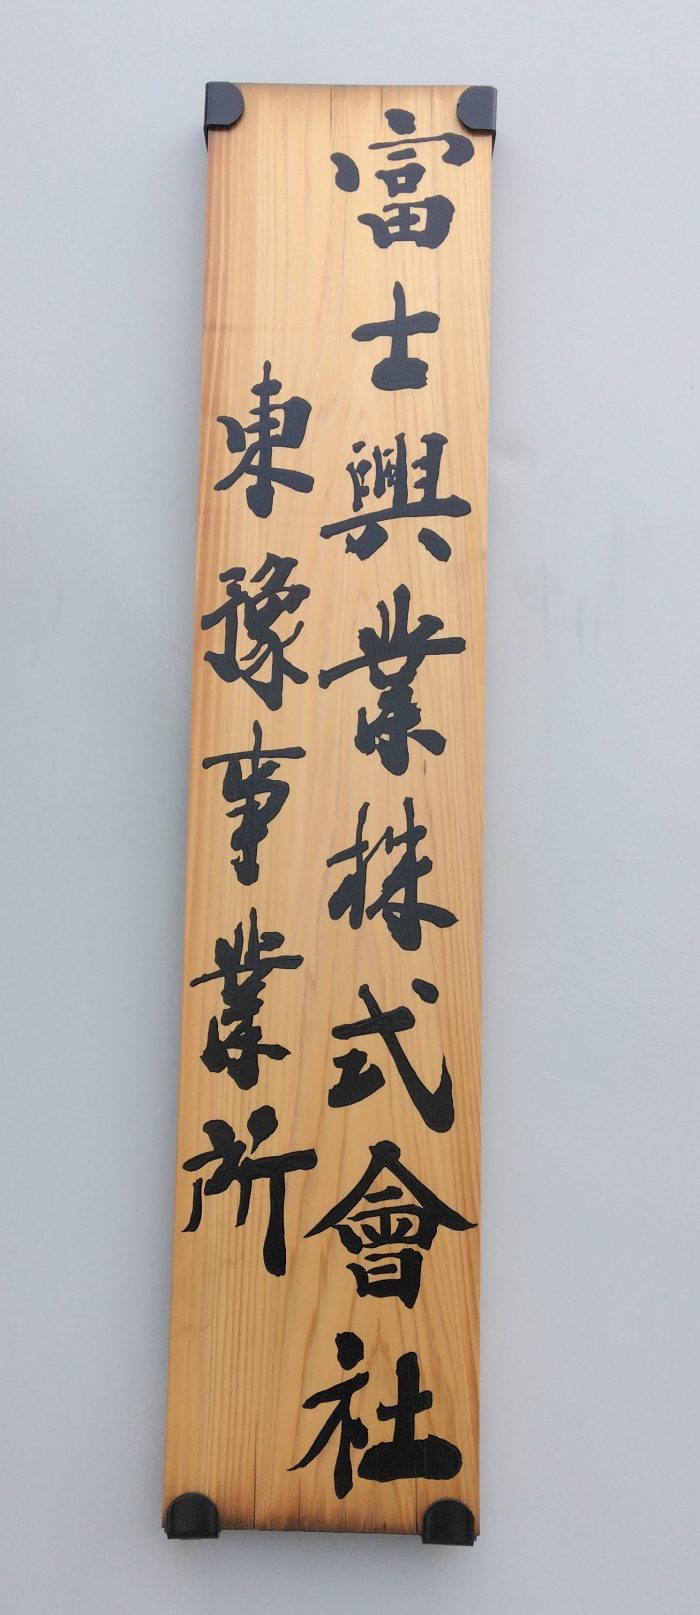 富士興業株式會社
東豫事業所